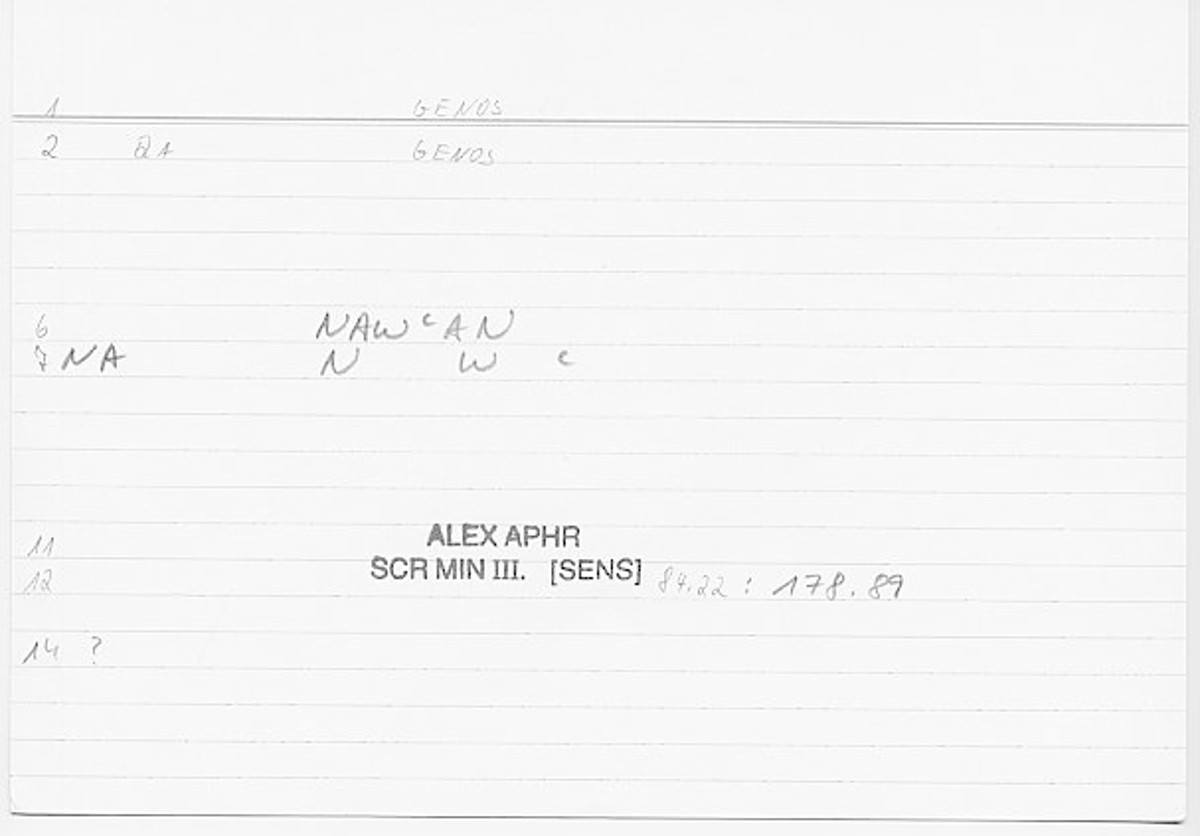 1 GENOS
2 QA GENOS
6 NAWᶜAN
7 NA N W ᶜ
ALEX APHR
11
SCR MIN III. [SENS]
12 84.22 : 178.89
14 ?